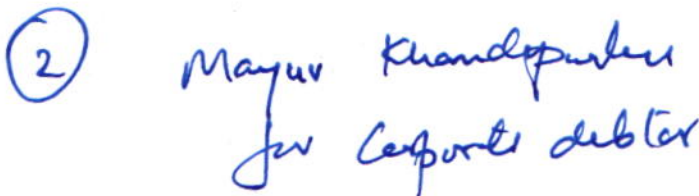 2 Mayur Khandeparkar
for Corporate debtor